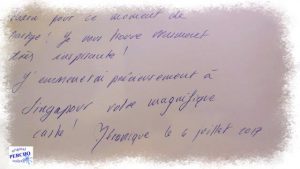 pour ce moment de
partage ! Je vous trouve vraiment
très inspirante !
J'emmenerai précieusement à
Singapour votre magnifique
carte !
Véronique le 6 juillet 2017
PERCHO